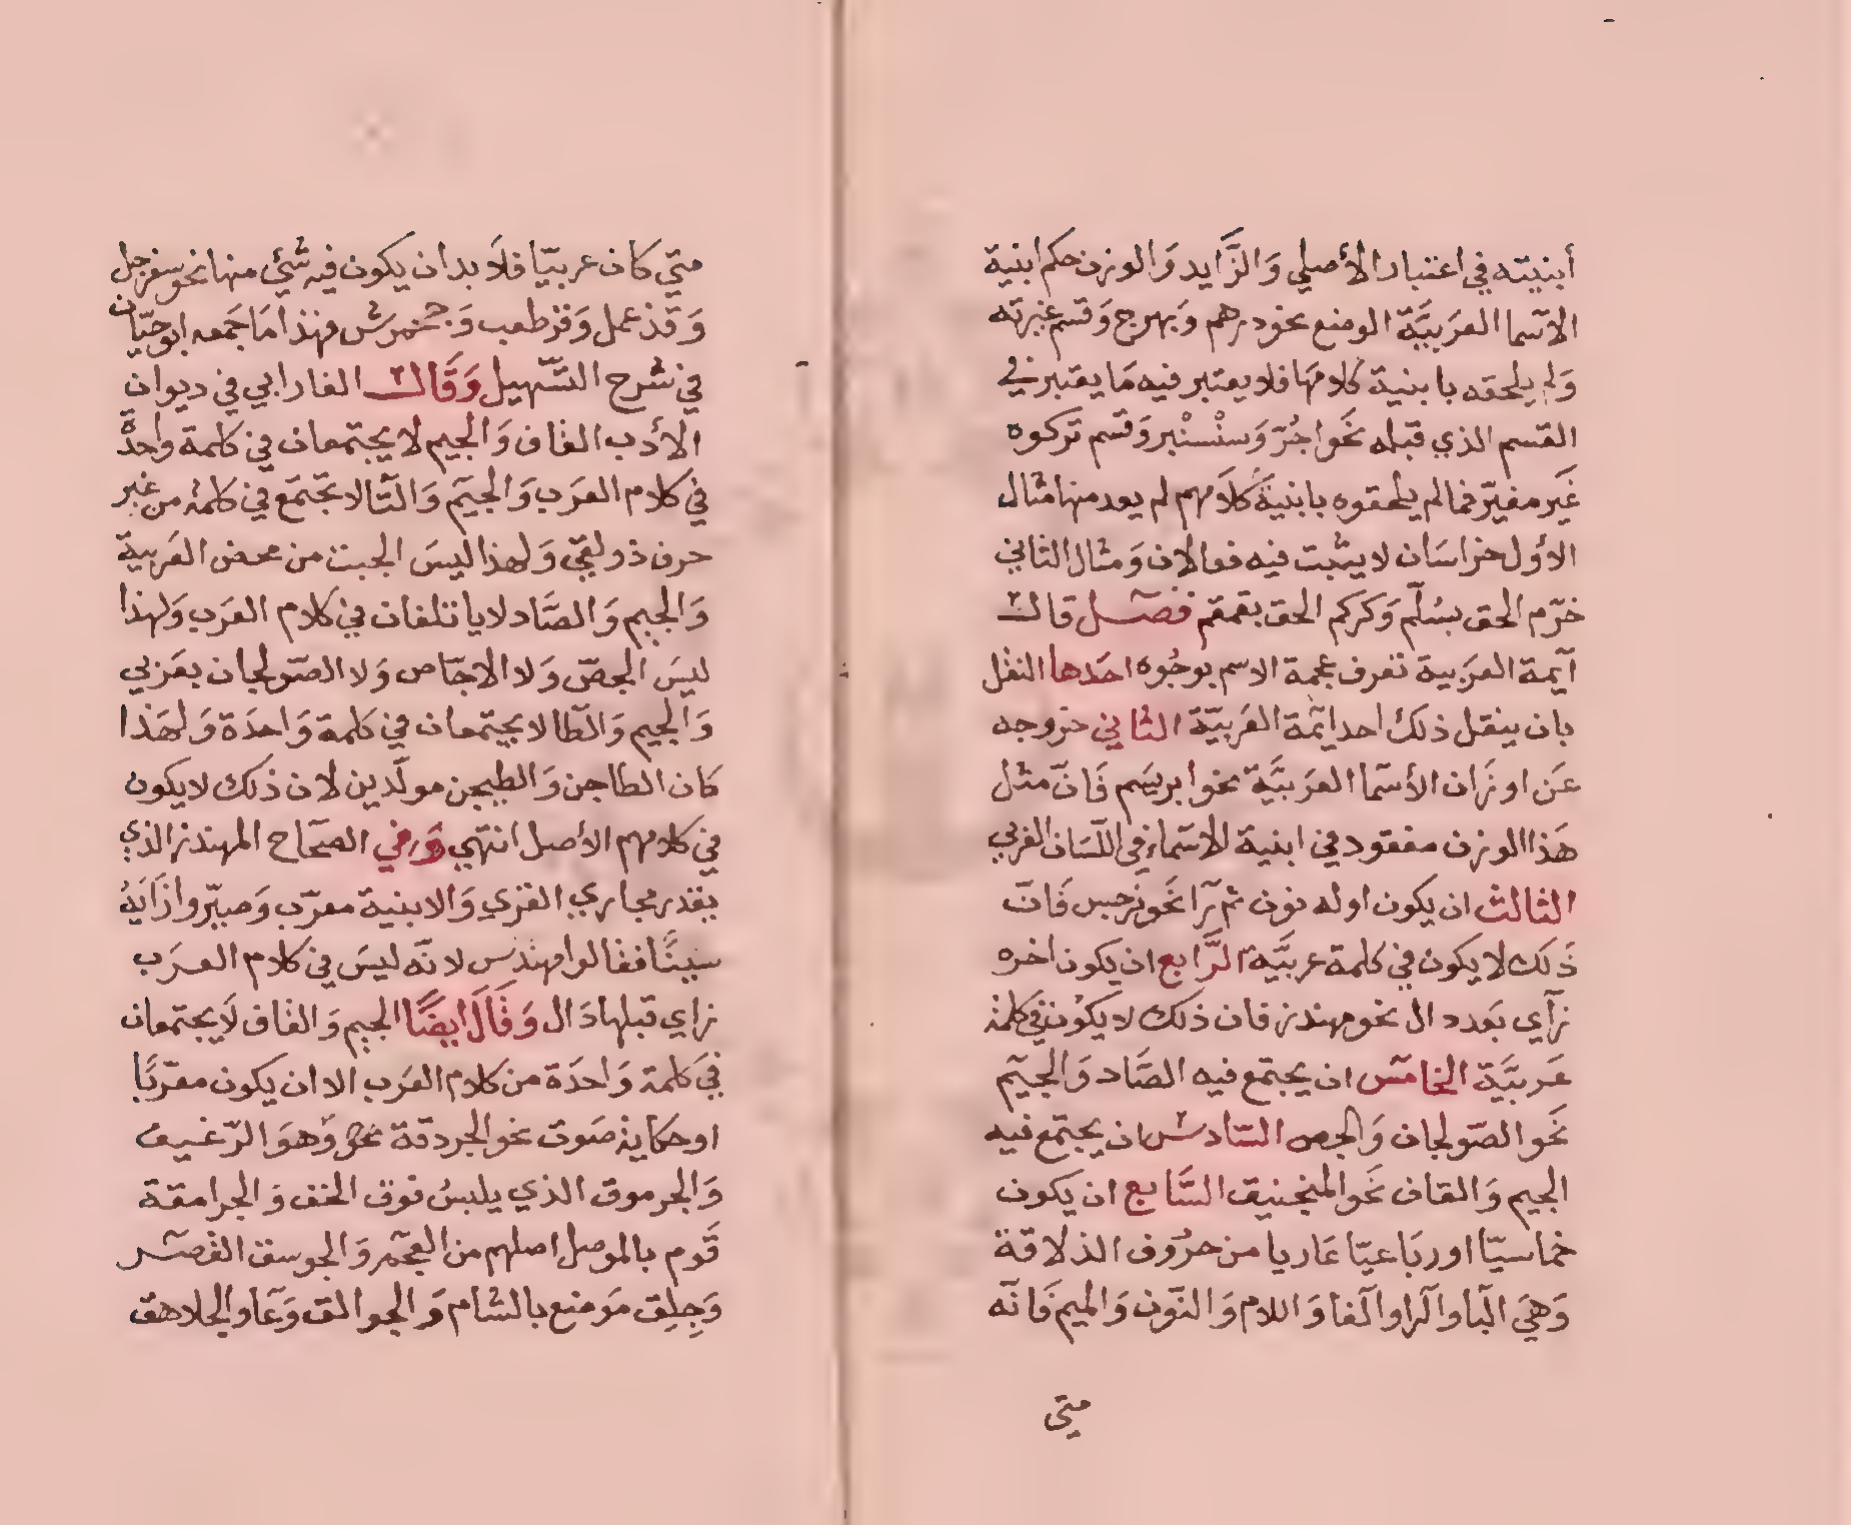 أبنيته في اعتبار الأصلي وَالزَّايد وَالوزن حكم ابنية
الاسما العَرَبيَّة الوضع نحو درهم وَبهرج وَقسم غيرته
وَلم يلحقه بابنية كلامهَا فلا يعتبر فيه مَا يعتبر في
القسم الذي قبله نحَو اجُرّ وَسنْسنْبر وَقسم تركوه
غَير مغيّر فما لم يلحقوه بابنية كلَامهم لم يعد منها مثال
الأول خراسَان لا يثبت فيه فعالان وَمثال الثاني
خرّم الحق بسُلّم وَكركم الحق بقمقم فصَل قال
آيمة العرَبية تعرف عجمة الاسم بوجُوه احَدها النقل
بان ينقل ذلك احد ايمّة العَربيّة الثاني خروجه
عَن اوزَان الأسمَا العرَبيَّة نحو ابريسَم فَانّ مثل
هَذا الوزن مفقود في ابنية الاسمَاء في اللّسَان العَربي
الثالث ان يكون اوله نون ثم رَا نحَو نرجس فَانّ
ذَلك لا يكون في كلمة عربيَّة الرَّابع ان يكون اخره
زاي بَعد دال نحو مهندز فان ذلك لا يكوُن في كلمة
عَربيَّة الخامسَ ان يجتمع فيه الصَّاد وَالجيم
نحَو الصّولجان وَالجص السّادسُ ان يجتمع فيه
الجيم وَالقاف نحَو المنجنيق السَّابع ان يكون
خماسيّا اوربَاعيّا عَاريا من حرُوف الذلاقة
وَهيَ البَا والرا والفا وَاللام وَالنّون وَالميم فَانّه
متى
متي كان عربيّا فلَا بد ان يكون فيه شئ منها نحو سفرجل
وَقذعمل وَقرطعب وَجحمرش فهذا مَا جَمعه ابو حيّان
في شرح التَّسهيل وَقَال الفارابي في ديوان
الأدب القاف وَالجيم لا يجتمعان في كلمة واحدَة
في كلام العرَب وَالجيم وَالتّا لا تجتمَع في كلمة من غير
حرف ذولقيّ وَلهذا ليسَ الجبت من محض العَربية
وَالجيم وَالصَّاد لا ياتلفان في كلام العرَب وَلهذا
ليسَ الجصّ وَلا الاجّاص وَلا الصّولجان بعَربي
وَالجيم وَالطّا لا يجتمعان في كلمة وَاحدَة وَلهَذا
كان الطاجن وَالطيجن مولّدين لان ذلك لا يكون
في كلامهم الأصل انتهي وَفي الصحَاح المهندز الذي
يقدر مجاري القني وَالابنية معرّب وَصيّروا زَايَهُ
سينًا فقالوا مهندس لانّه ليسَ في كلام العرَب
زاي قبلها دَال وَقَالَ ايضًا الجيم وَالقاف لَا يجتمعان
في كلمة وَاحدَة من كلام العَرب الا ان يكون معَرّبَا
او حكاية صَوت نحو الجردقة وَهوَ الرّغيف
وَالجرموق الذي يلبسُ فوق الخف وَالجرامقة
قَوم بالموصل اصلهم من العجم وَالجوسق القصر
وَجِلِق مَوضع بالشام وَالجوالق وعَاو الجلاهق